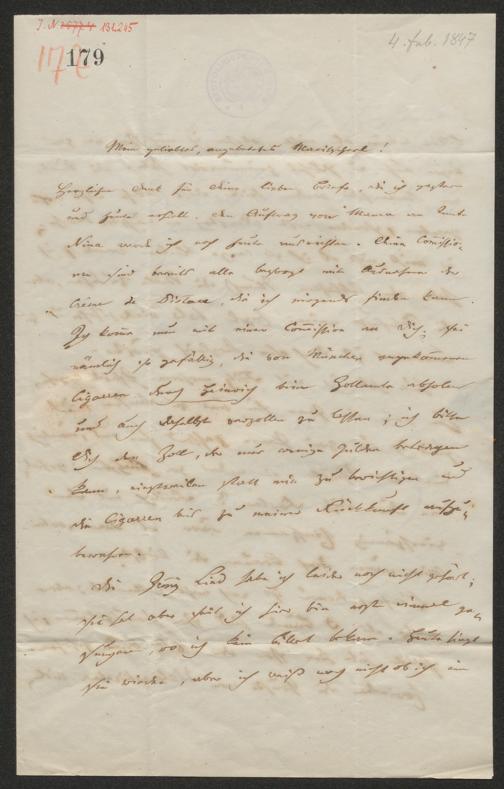 J.N. 15774 131.245
4. Feb. 1847
179
Mein geliebtes, angebetetes Maritscherl!
Herzlichen Dank für deine lieben Briefe, die ich gestern
und heute erhielt. Den Auftrag von Mama an Tante
Nina werde ich noch heute ausrichten. Deine Commissio-
nen sind bereits alle besorgt mit Ausnahme der
Crême de, die ich nirgends finden kann.
Ich komme nun mit einer Commission an dich; sei
nämlich so gefällig, die von München angekommenen
Cigarren durch Heinrich beim Zollamte abholen
und auch daselbst verzollen zu lassen; ich bitte
dich den Zoll, der nur wenige Gulden betragen
kann, einstweilen statt mir zu berichtigen und
die Cigarren bis zu meiner Rückkunft aufzu-
bewahren.
Die Jenny Lind habe ich leider noch nicht gehört;
sie hat aber seit ich hier bin erst einmal ge-
sungen, wo ich kein Billet bekam. Heute singt
sie wieder, aber ich weiß noch nicht ob ich ein